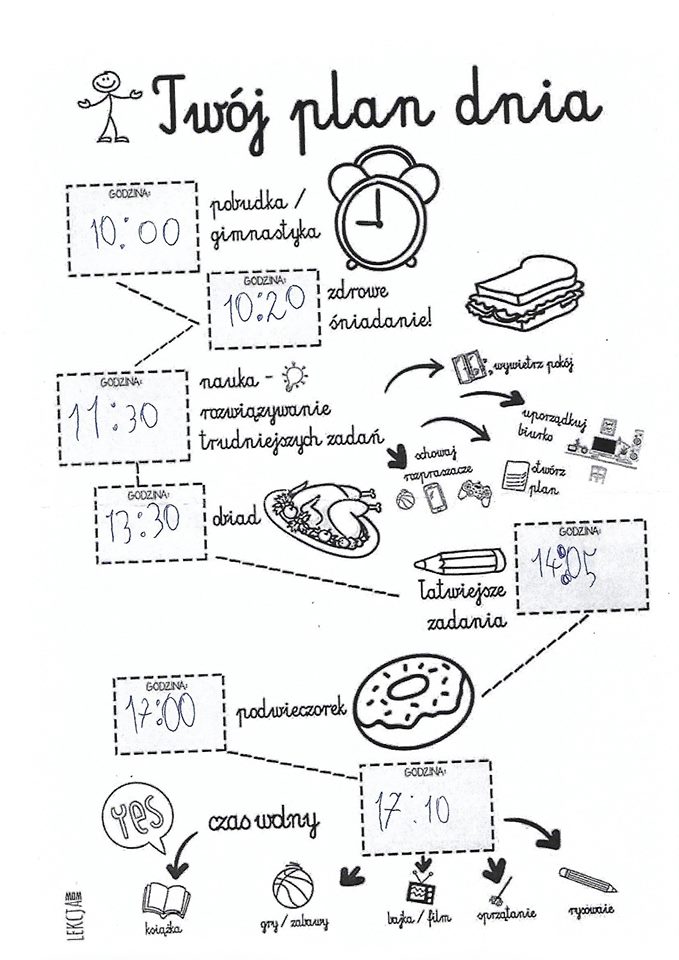 Twój plan dnia
GODZINA:
10:00
pobudka /
gimnastyka
GODZINA:
10:20
zdrowe
śniadanie!
GODZINA:
11:30
nauka -
rozwiązywanie
trudniejszych zadań
wywietrz pokój
uporządkuj
biurko
schowaj
rozpraszacze
stwórz
plan
GODZINA:
13:30
obiad
GODZINA:
14:05
łatwiejsze
zadania
GODZINA:
17:00
podwieczorek
GODZINA:
17:10
Yes
czas wolny
książka
gry / zabawy
bajka / film
sprzątanie
rysowaie
LEKCJA MAM